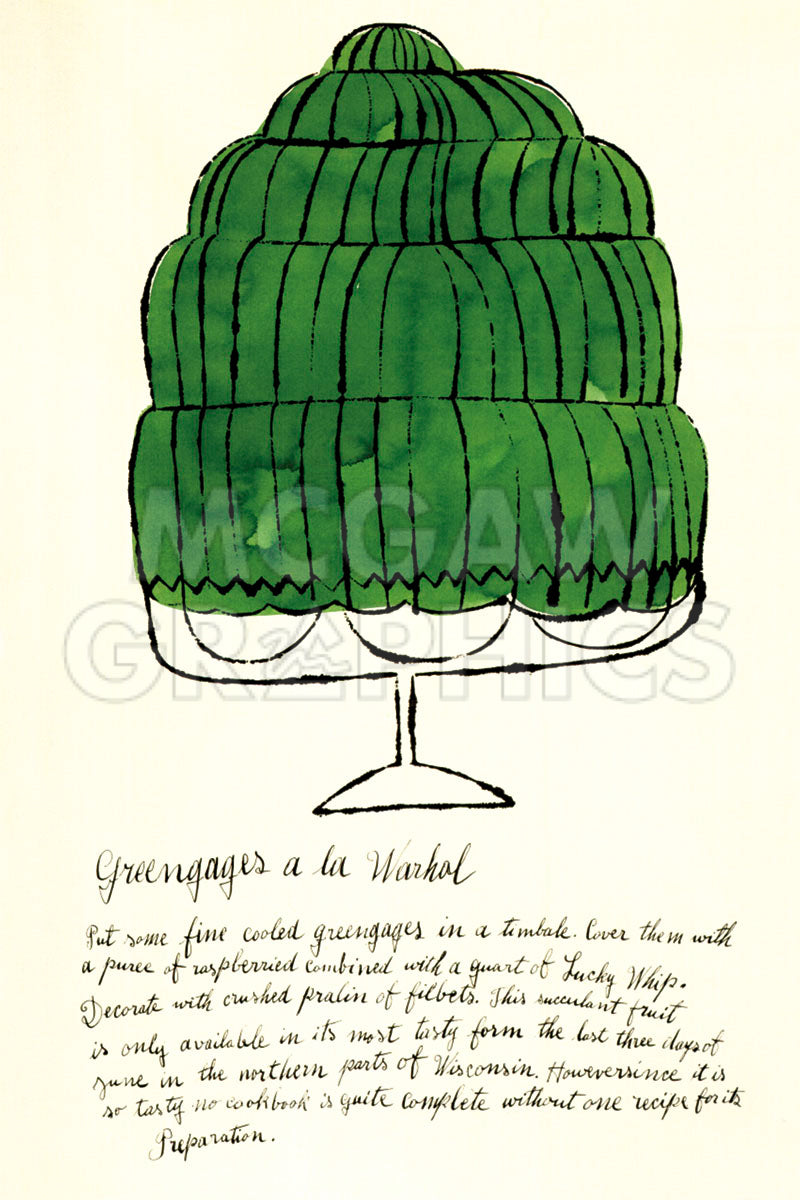 MCGAW
GRAPHICS
Greengages a la Warhol
Put some fine cooled greengages in a timbale. Cover them with
a puree of raspberried combined with a quart of Lucky Whip.
Decorate with crushed pralin of filbets. This succulant fruit
is only available in its most tasty form the last three days of
june in the northern parts of Wisconsin. Howeversince it is
so tasty no cookbook is quite complete without one recipe for its
Preparation.